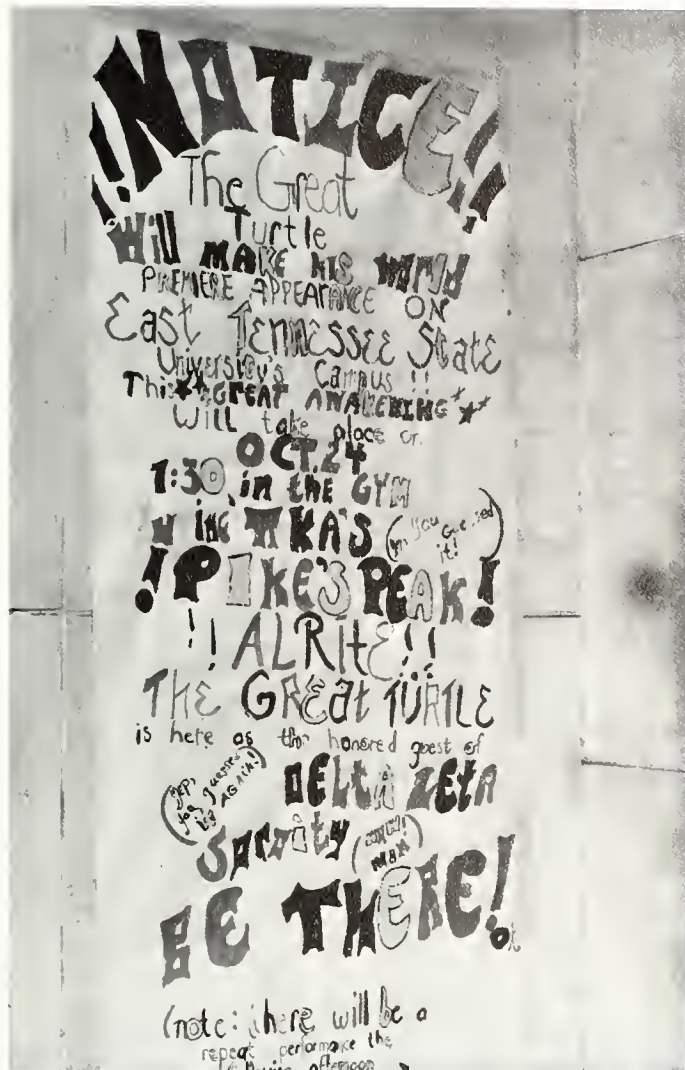 !!NOTICE!!
The Great
Turtle
Will MAKE HIS
PREMIERE APPEARANCE ON
East TENNESSEE State
University's Campus !!
This **GREAT AWAKENING**
Will take place on
OCT. 24
1:30 in the GYM
in the ΠKA'S (yep, you guessed it!)
!PIKE'S PEAK!
!! ALRItE!!
THE GREat TURTLE
is here as the honored guest of
(yep, you guessed it AGAIN!) DELtA ZEtA
SororitY
BE THERE!
(note: there will be a
repeat performance the
following afternoon